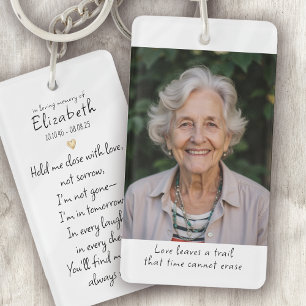 in loving memory of
Elizabeth
10.10.46 - 08.08.25
Hold me close with love,
not sorrow,
I'm not gone—
I'm in tomorrow
In every laugh
in every
You'll find m
always
Love leaves a trail
that time cannot erase